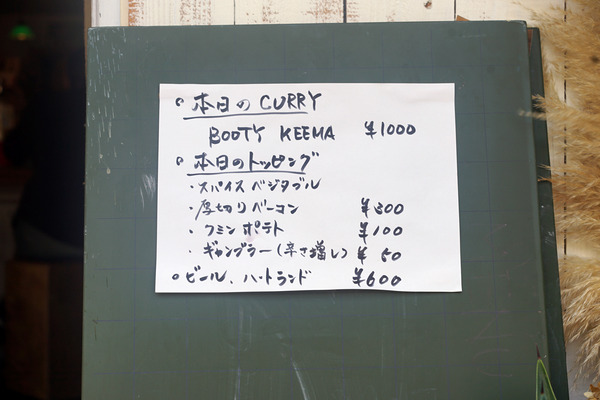 本日のCURRY
BOOTY KEEMA ¥1000
本日のトッピング
・スパイスベジタブル
・厚切りベーコン ¥300
・クミンポテト ¥100
・ギャングラー(辛さ増し) ¥50
ビール、ハートランド ¥600